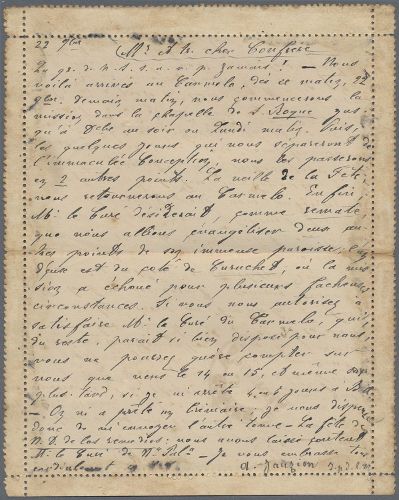 22 9bre
Mr et tr. cher Confrère
L. gr. de N. S. s. a. v. p. jamais! - Nous
voilà arrivés au Carmelo, dès ce matin, 22
9bre. Demain matin, nous commencerons la
mission dans la chapelle de S. Roque jus-
qu'à Dche au soir ou Lundi matin. Puis,
les quelques jours qui nous sépareront de
l'immaculée Conception, nous les passerons
en 2 autres points. La veille de la fête,
nous retournerons au Carmelo. Enfin
Mr le Curé désirerait, comme
que nous allions évangéliser deux au-
tres points de sa immense paroisse. L'un
d'eux est du côté de où la mis-
sion a échoué pour plusieurs fâcheuses
circonstances. Si vous nous autorisez à
satisfaire Mr le Curé du Carmelo, qui,
du reste, paraît si bien disposé pour nous,
vous ne pourrez guère compter sur
nous que vers le 14 ou 15, et même
plus tard, si je m'arrête 4 ou 5 jours à
- On m'a prêté un bréviaire, je vous dispense
donc de m'envoyer l'autre tome - La fête de
N. D. de los remedios: nous avons laissé
Mr le Curé de - Je vous embrasse tous
cordialement
A. Sauzion